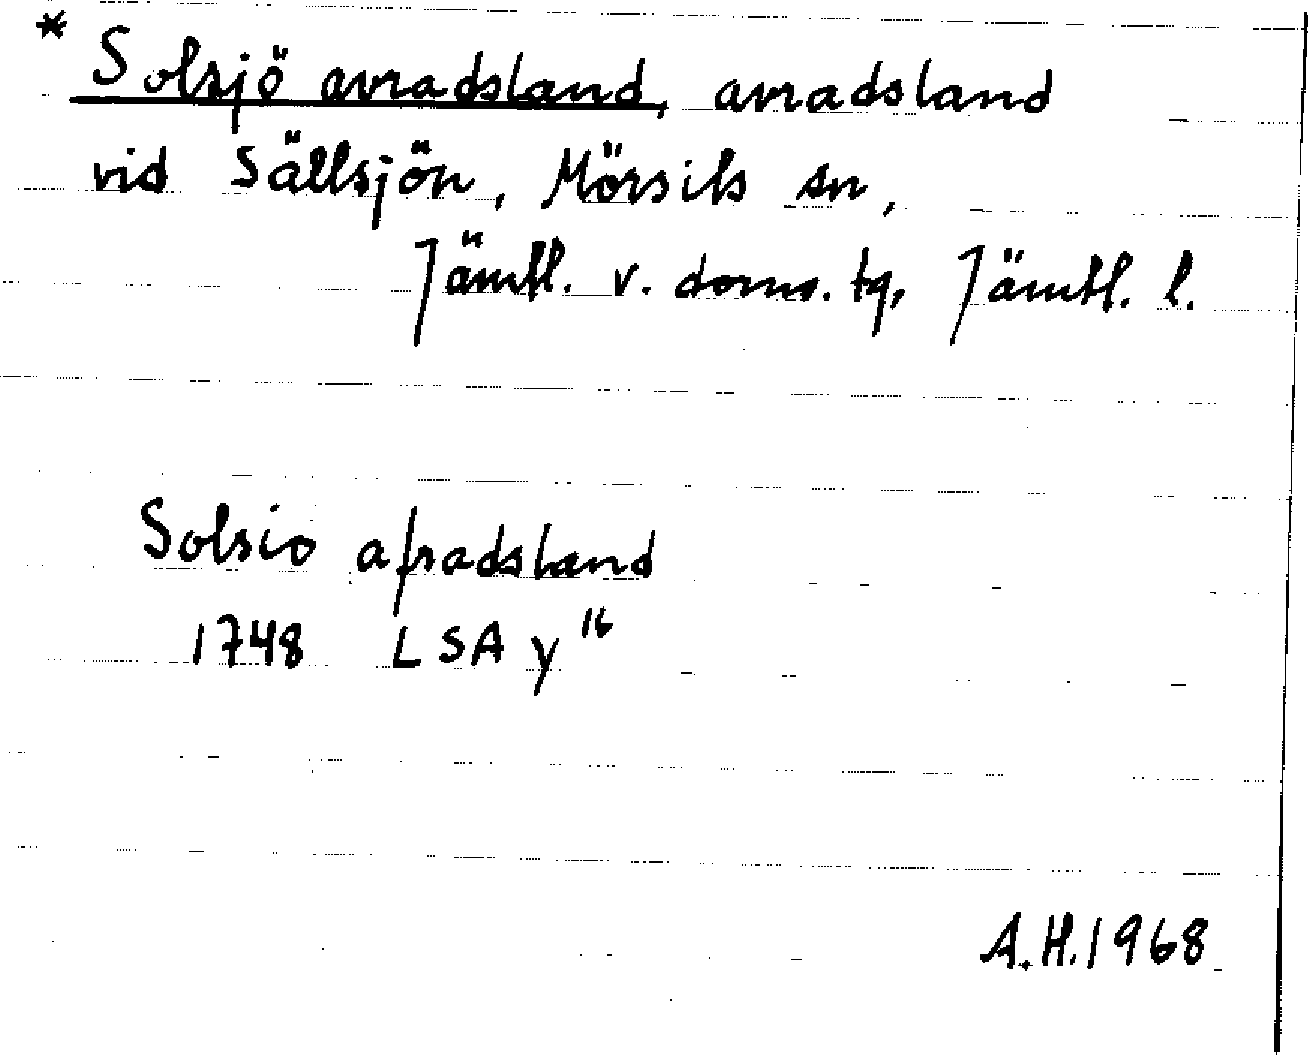 * Solsjö avradsland, avradsland
vid Sällsjön, Mörsils sn,
Jämtl. v. doms. tg, Jämtl. l.
Solsio afradsland
1748 LSA y16
A.H. 1968